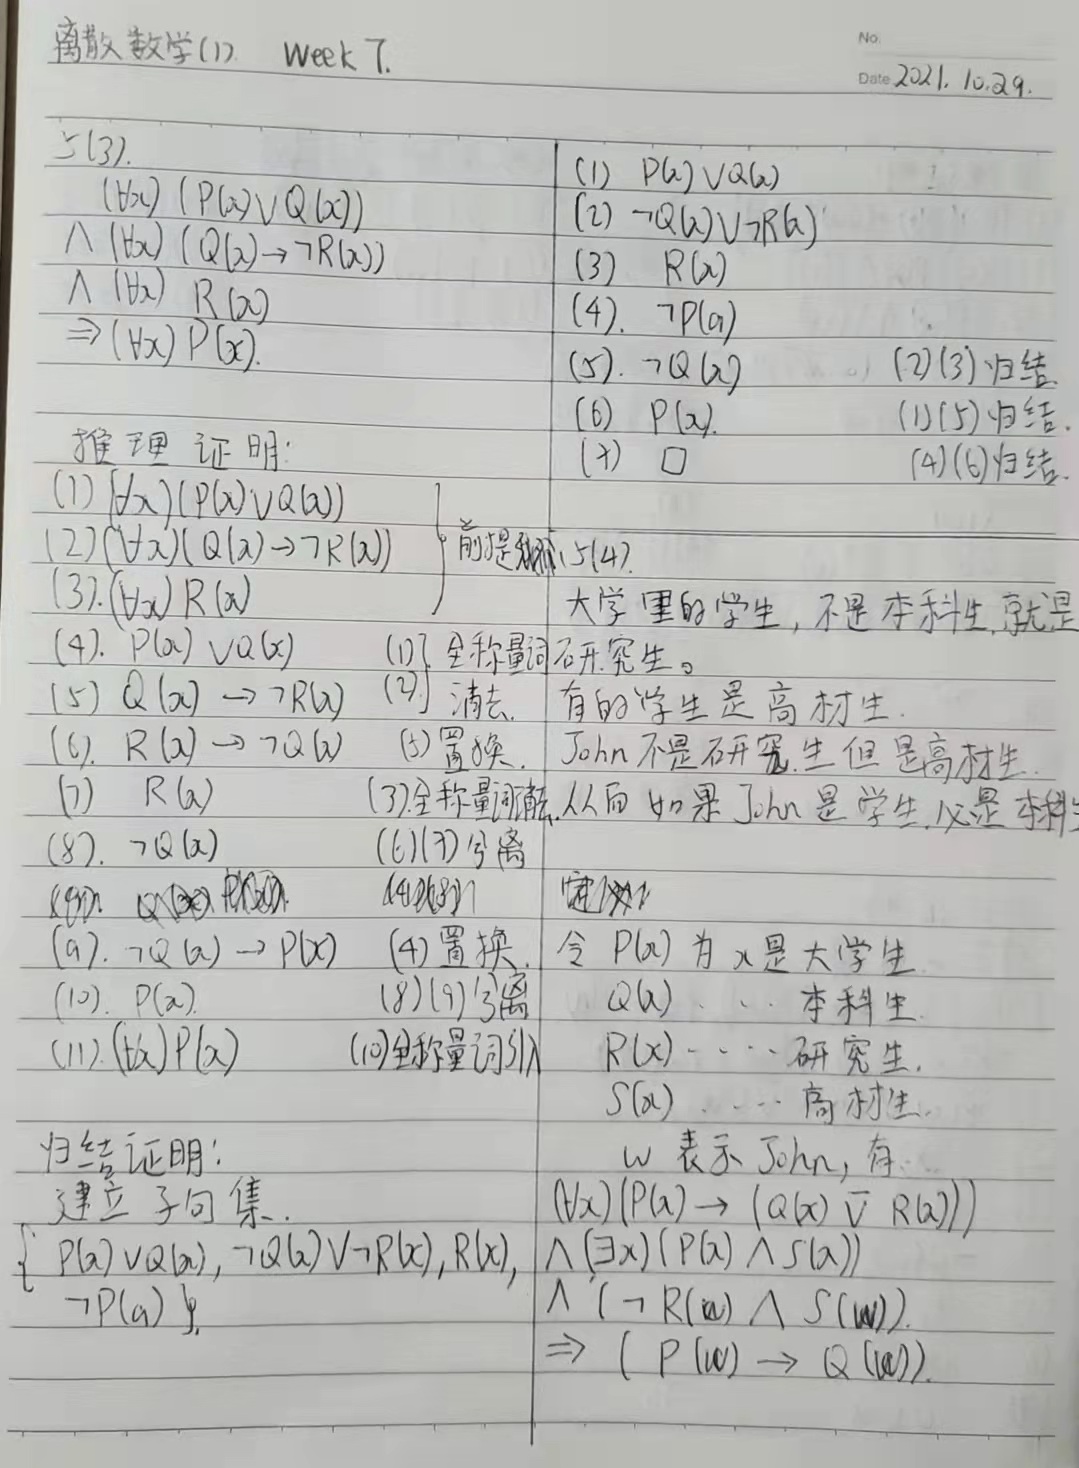 离散数学(1). Week 7.
No.
Date 2021. 10.29.
5(3).
(∀x) (P(x)∨Q(x))
∧ (∀x) (Q(x)→¬R(x))
∧ (∀x) R(x)
⇒ (∀x) P(x).
推理 证明:
(1) (∀x)(P(x)∨Q(x))
(2) (∀x)(Q(x)→¬R(x)) 前提
(3). (∀x) R(x)
(4). P(x) ∨Q(x) (1) 全称量词
(5) Q(x) → ¬R(x) (2) 消去
(6). R(x) → ¬Q(x) (5) 置换.
(7) R(x) (3).全称量词消去.
(8). ¬Q(x) (6)(7)分离
(9). ¬Q(x) → P(x) (4) 置换.
(10). P(x). (8)(9)分离
(11). (∀x)P(x) (10)全称量词引入
归结证明:
建立子句集.
{ P(x)∨Q(x), ¬Q(x)∨¬R(x), R(x),
¬P(a) }.
(1) P(x)∨Q(x)
(2) ¬Q(x)∨¬R(x)
(3) R(x)
(4). ¬P(a)
(5). ¬Q(x) (2)(3)归结
(6) P(x). (1)(5)归结.
(7) □ (4)(6)归结.
5(4).
大学里的学生, 不是本科生, 就是
研究生。
有的学生是高材生.
John不是研究生但是高材生.
从而如果John是学生, 必是本科生
令 P(x) 为 x是大学生
Q(x) · · · 本科生.
R(x) · · · · 研究生.
S(x) · · · · 高材生.
w 表示 John, 有
(∀x)(P(x) → (Q(x) ⊽ R(x)))
∧ (∃x) (P(x) ∧ S(x))
∧ (¬R(w) ∧ S(w)).
⇒ ( P(w) → Q(w)).